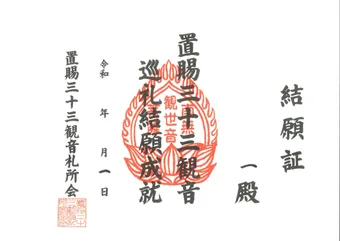 結願証
一殿
置賜三十三観音
巡礼結願成就
観世音
令和 年 月一日
置賜三十三観音札所会